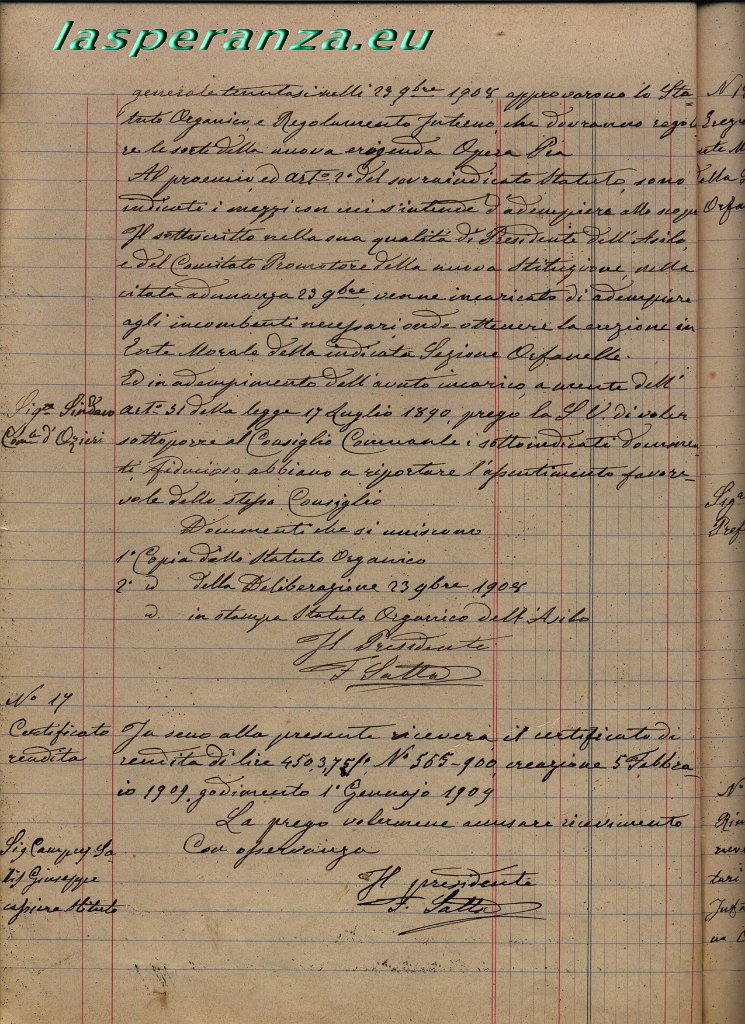 lasperanza.eu
generale tenutasi nelli 23 9bre 1908, approvarono lo Sta=
tuto Organico, e Regolamento Interno, che dovranno regola
re le sorti della nuova erigenda Opera Pia
Al proemio, ed arto 2o del sovraindicato Statuto, sono
indicati i mezzi con cui s'intende d'adempiere allo scopo
Il sottoscritto nella sua qualità di Presidente dell'Asilo,
e del Comitato Promotore della nuova Istituzione, nella
citata adunanza 23 9bre, venne incaricato di adempiere
agli incombenti necessari, onde ottenere la erezione in
Ente Morale della indicata Sezione Orfanelle.
Ed in adempimento dell'avuto incarico, a mente dell'
Sigre Sindaco
Comne d'Ozieri
arto 31 della legge 17 Luglio 1890, prego la S. V. di voler
sottoporre al Consiglio Comunale i sottoindicati documen=
ti, fiducioso abbiano a riportare l'assentimento favore=
vole dello stesso Consiglio
Documenti che si uniscono
1o Copia dello Statuto Organico
2o id della Deliberazione 23 9bre 1908
id. in stampa Statuto Organico dell'Asilo
Il Presidente
F. Satta
No 17
Certificato
rendita
In seno alla presente riceverà il certificato di
rendita di lire 450, 3,75 % No 565-900, creazione 5 Febbra=
io 1909, godimento 1o Gennajo 1909
La prego volermene accusare ricevimento
Con osservanza
Sig Campus Sa
Giuseppe
cassiere Istituto
Il presidente
F. Satta
No
Sigr
Pref
No